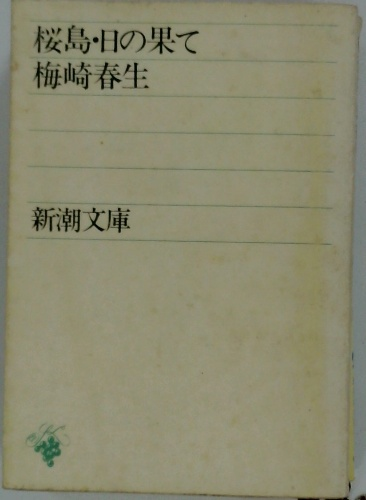 桜島・日の果て
梅崎春生
新潮文庫